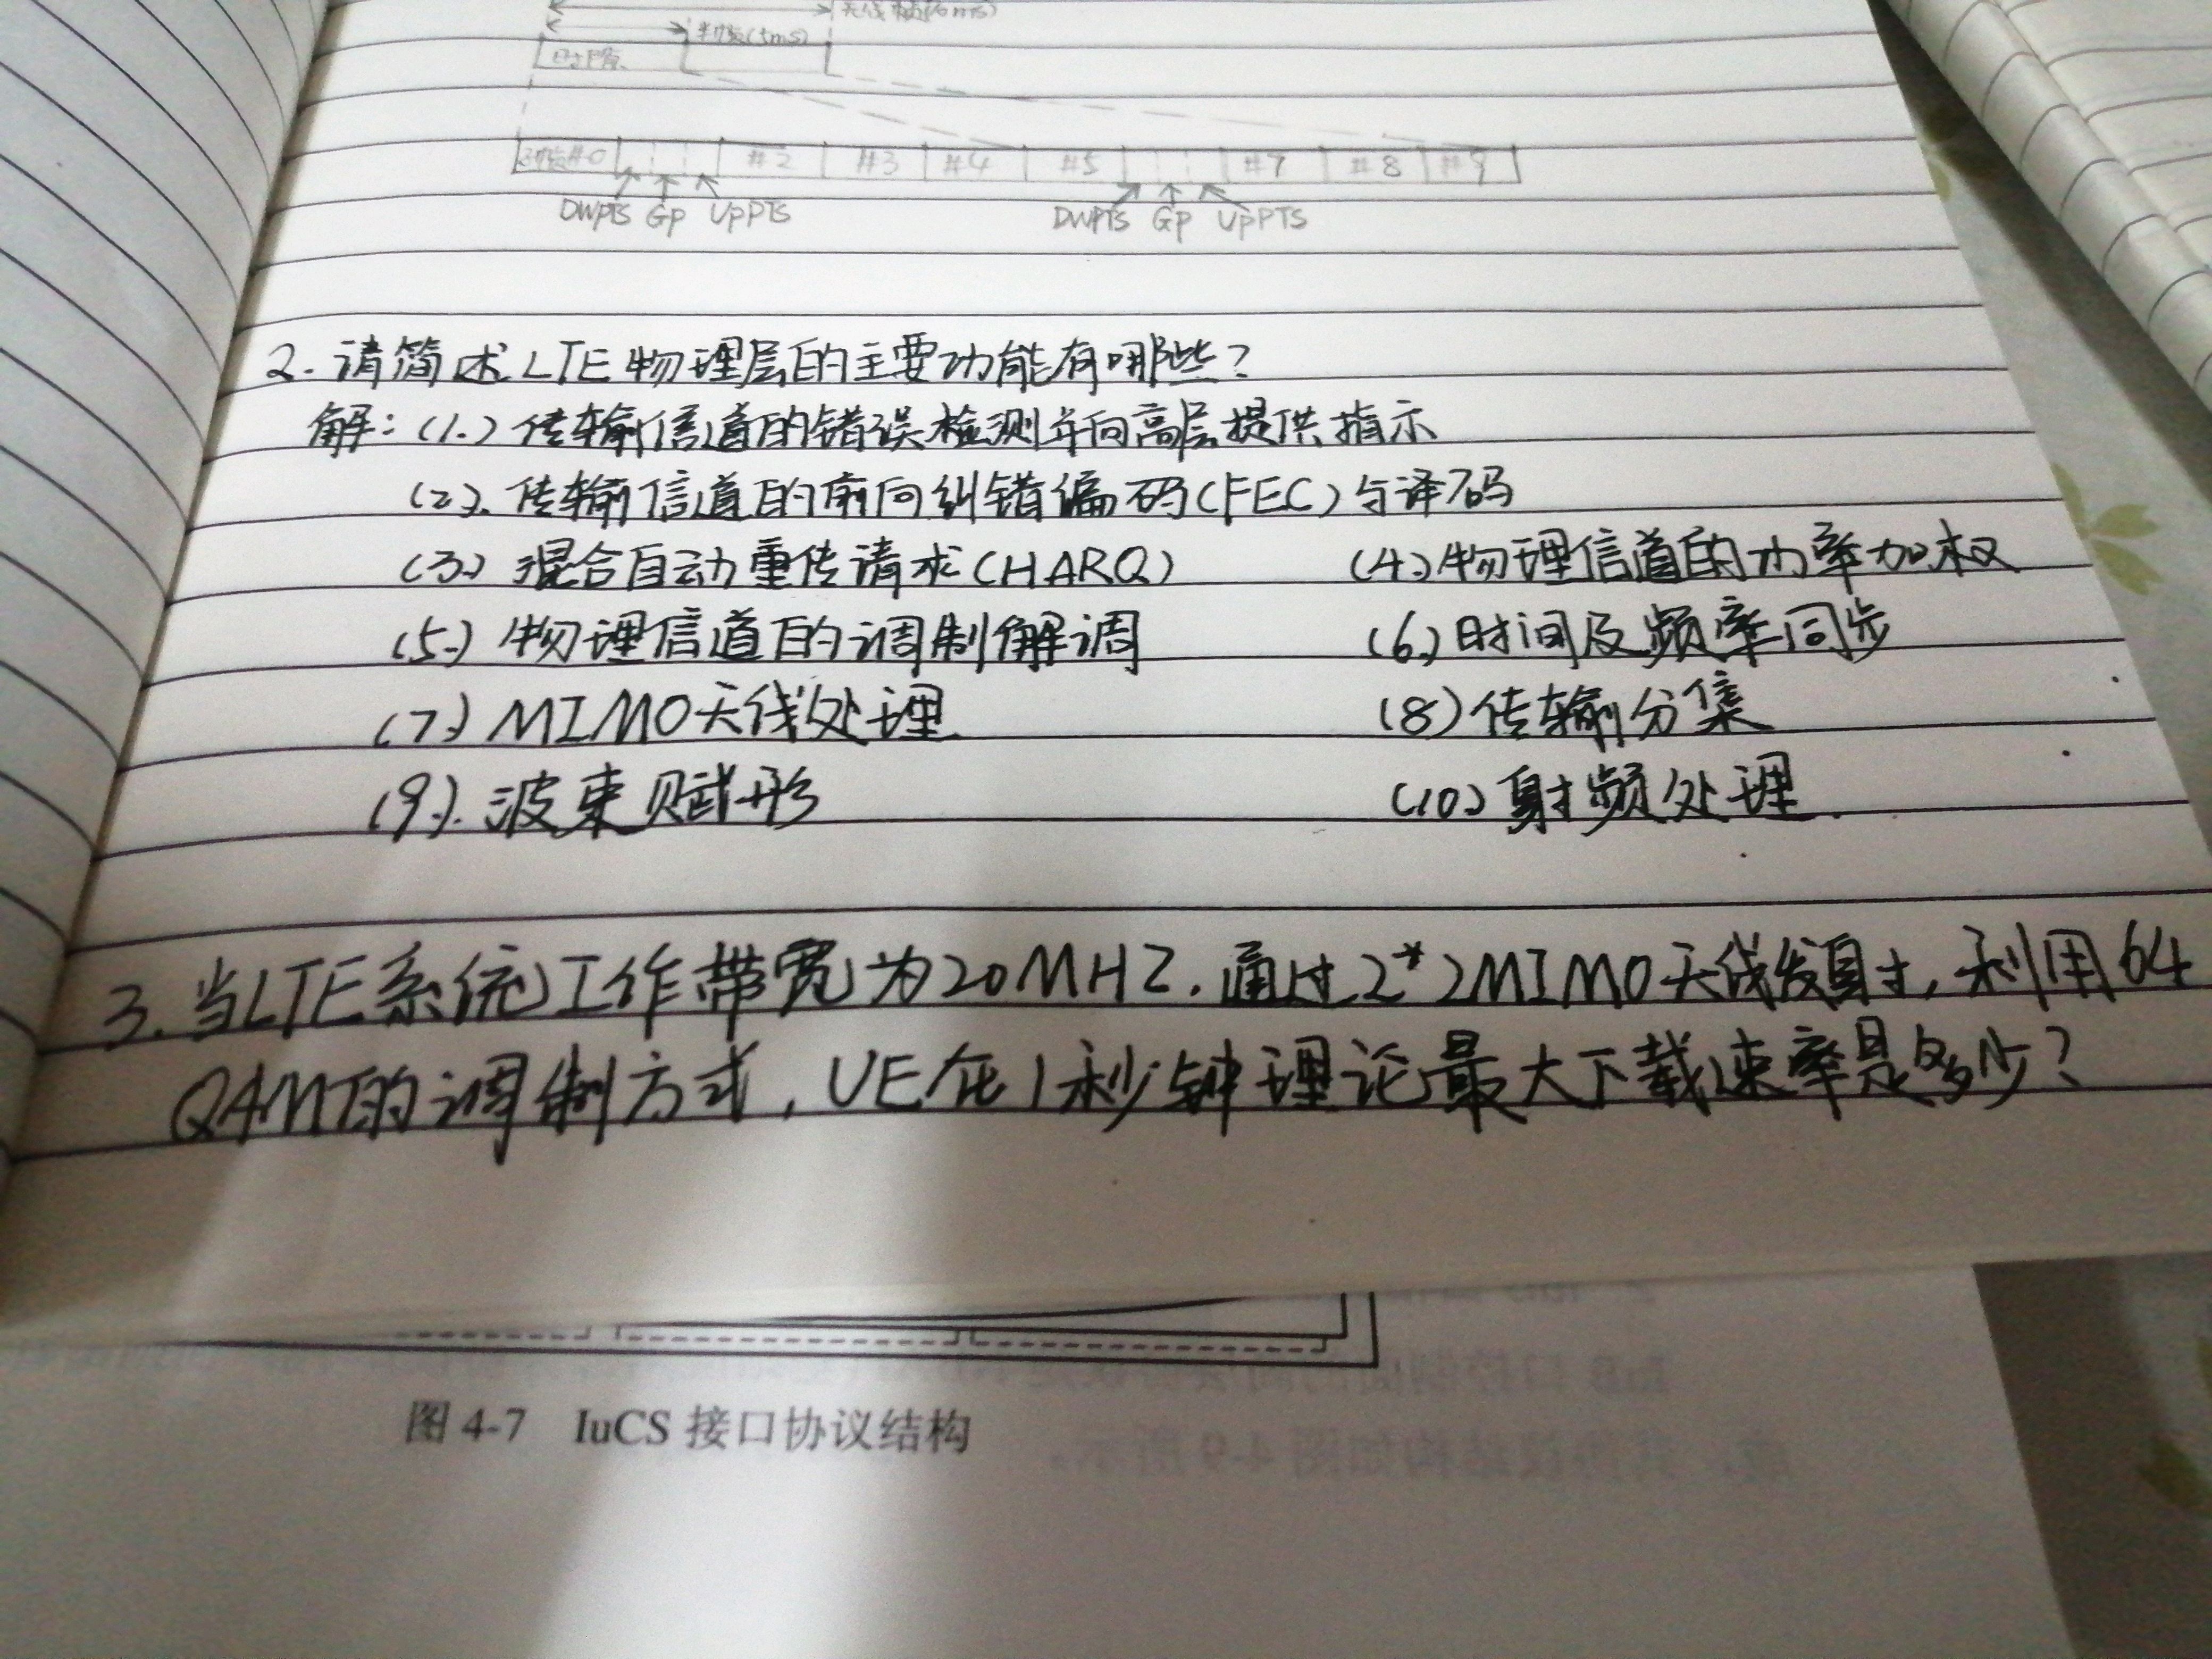 半帧(5ms)
#2 #3 #4 #5 #7 #8 #9
DWPTS GP UpPTS DWPTS GP UpPTS
2.请简述LTE物理层的主要功能有哪些?
解:(1.)传输信道的错误检测并向高层提供指示
(2).传输信道的前向纠错编码(FEC)与译码
(3.)混合自动重传请求(HARQ) (4.)物理信道的功率加权
(5.)物理信道的调制解调 (6.)时间及频率同步
(7.)MIMO天线处理 (8)传输分集
(9.).波束赋形 (10.)射频处理.
3.当LTE系统工作带宽为20MHZ.通过2*2MIMO天线发射,利用64
QAM的调制方式,UE在1秒钟理论最大下载速率是多少?
图 4-7 IuCS 接口协议结构